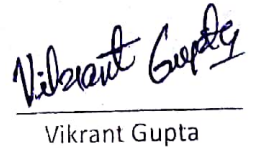 Vikrant Gupta
Vikrant Gupta